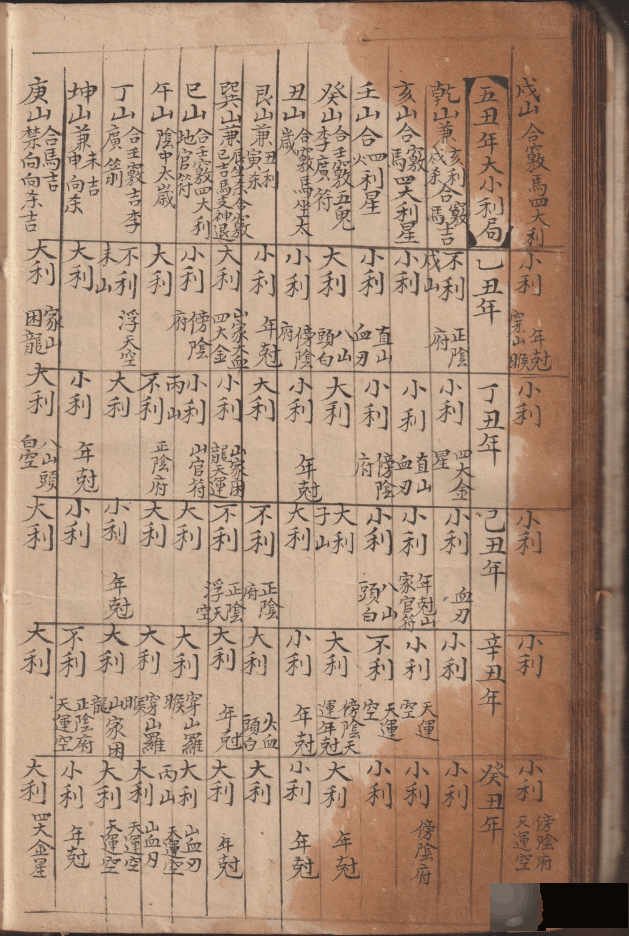 戌山 合竅馬四大利
小利 年尅 穿山㬋
小利
小利
小利
小利 傍陰府 天運空
五丑年大小利局
乙丑年
丁丑年
己丑年
辛丑年
癸丑年
乾山兼 亥利 戌杀 合竅馬吉
不利 戌山 正陰府
小利 四大金星
小利 血刃
小利
小利
亥山 合竅馬四大利星
小利
小利 直山血刃
小利 年尅山家官符
小利 天運空
小利 傍陰府
壬山 合四利星 火
小利 直山血刃
小利 傍陰府
小利 八山頭白
不利 天運空
小利
癸山 合壬竅五鬼 李廣符
大利 八山頭白
大利
大利 子山
大利 傍陰天運年尅
大利 年尅
丑山 合竅馬坐太歲
小利 傍陰府
小利 年尅
大利
小利 年尅
小利 年尅
艮山兼 丑利 寅杀
小利 年尅
大利
不利 正陰府
大利 火血頭白
大利
巽山兼
大利 山家大血 四大金
小利 山家困龍天運
不利 正陰浮天空
大利 年尅
大利 年尅
巳山 合壬竅四大利 地官符
小利 傍陰府
小利 丙山 山官符
大利
大利 穿山羅㬋
大利 丙山 山血刃 天運空
午山 陰中太歲
大利
不利 正陰府
大利
大利 穿山羅㬋
大利 山血刃 天運空
丁山 合壬竅吉李廣箭
不利 未山 浮天空
大利
小利 年尅
大利 山家困龍
大利 天運空
坤山兼 未吉 申向杀
大利
小利 年尅
小利
不利 正陰府 天運空
小利 年尅
庚山 合馬吉 禁向向杀吉
大利 家山困龍
大利 八山頭白空
大利
大利
大利 四大金星